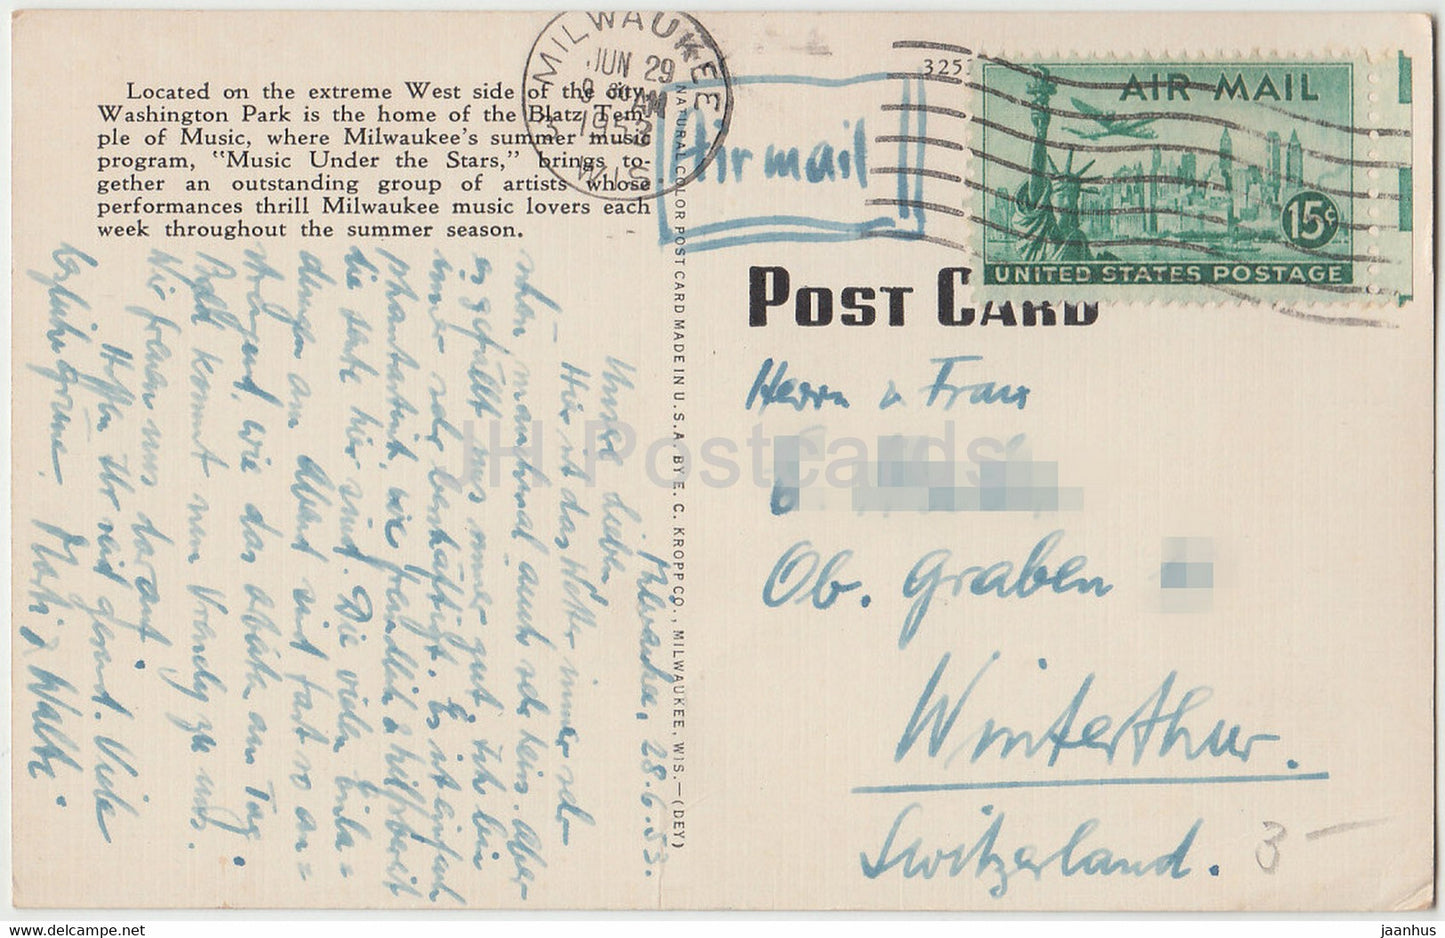 Located on the extreme West side of the city,
Washington Park is the home of the Blatz Tem-
ple of Music, where Milwaukee's summer music
program, "Music Under the Stars," brings to-
gether an outstanding group of artists whose
performances thrill Milwaukee music lovers each
week throughout the summer season.
MILWAUKEE
JUN 29
9 AM
1953
WIS.
3
Air mail
3251
AIR MAIL
15¢
UNITED STATES POSTAGE
POST CARD
NATURAL COLOR POST CARD MADE IN U.S.A. BY E. C. KROPP CO., MILWAUKEE, WIS.—(DEY)
Milwaukee, 28.6.53.
Unsere Lieben
Hier ist das Wetter immer sehr
schön, manchmal auch sehr heiss. Aber
es gefällt uns immer gut. Ich bin
immer sehr beschäftigt. Es ist einfach
phantastisch, wie freundlich & hilfsbereit
die Leute hier sind. Die vielen Einla=
dungen am Abend sind fast so an=
strengend, wie das arbeiten am Tag.
Bald kommt nun Vrendy zu uns.
Wir freuen uns darauf.
Hoffe Ihr seid gesund. Viele
herzliche Grüsse. & Walter.
Herrn & Frau
Ob. Graben
Winterthur.
Switzerland.
3 –
JH Postcards
delcampe.net
jaanhus